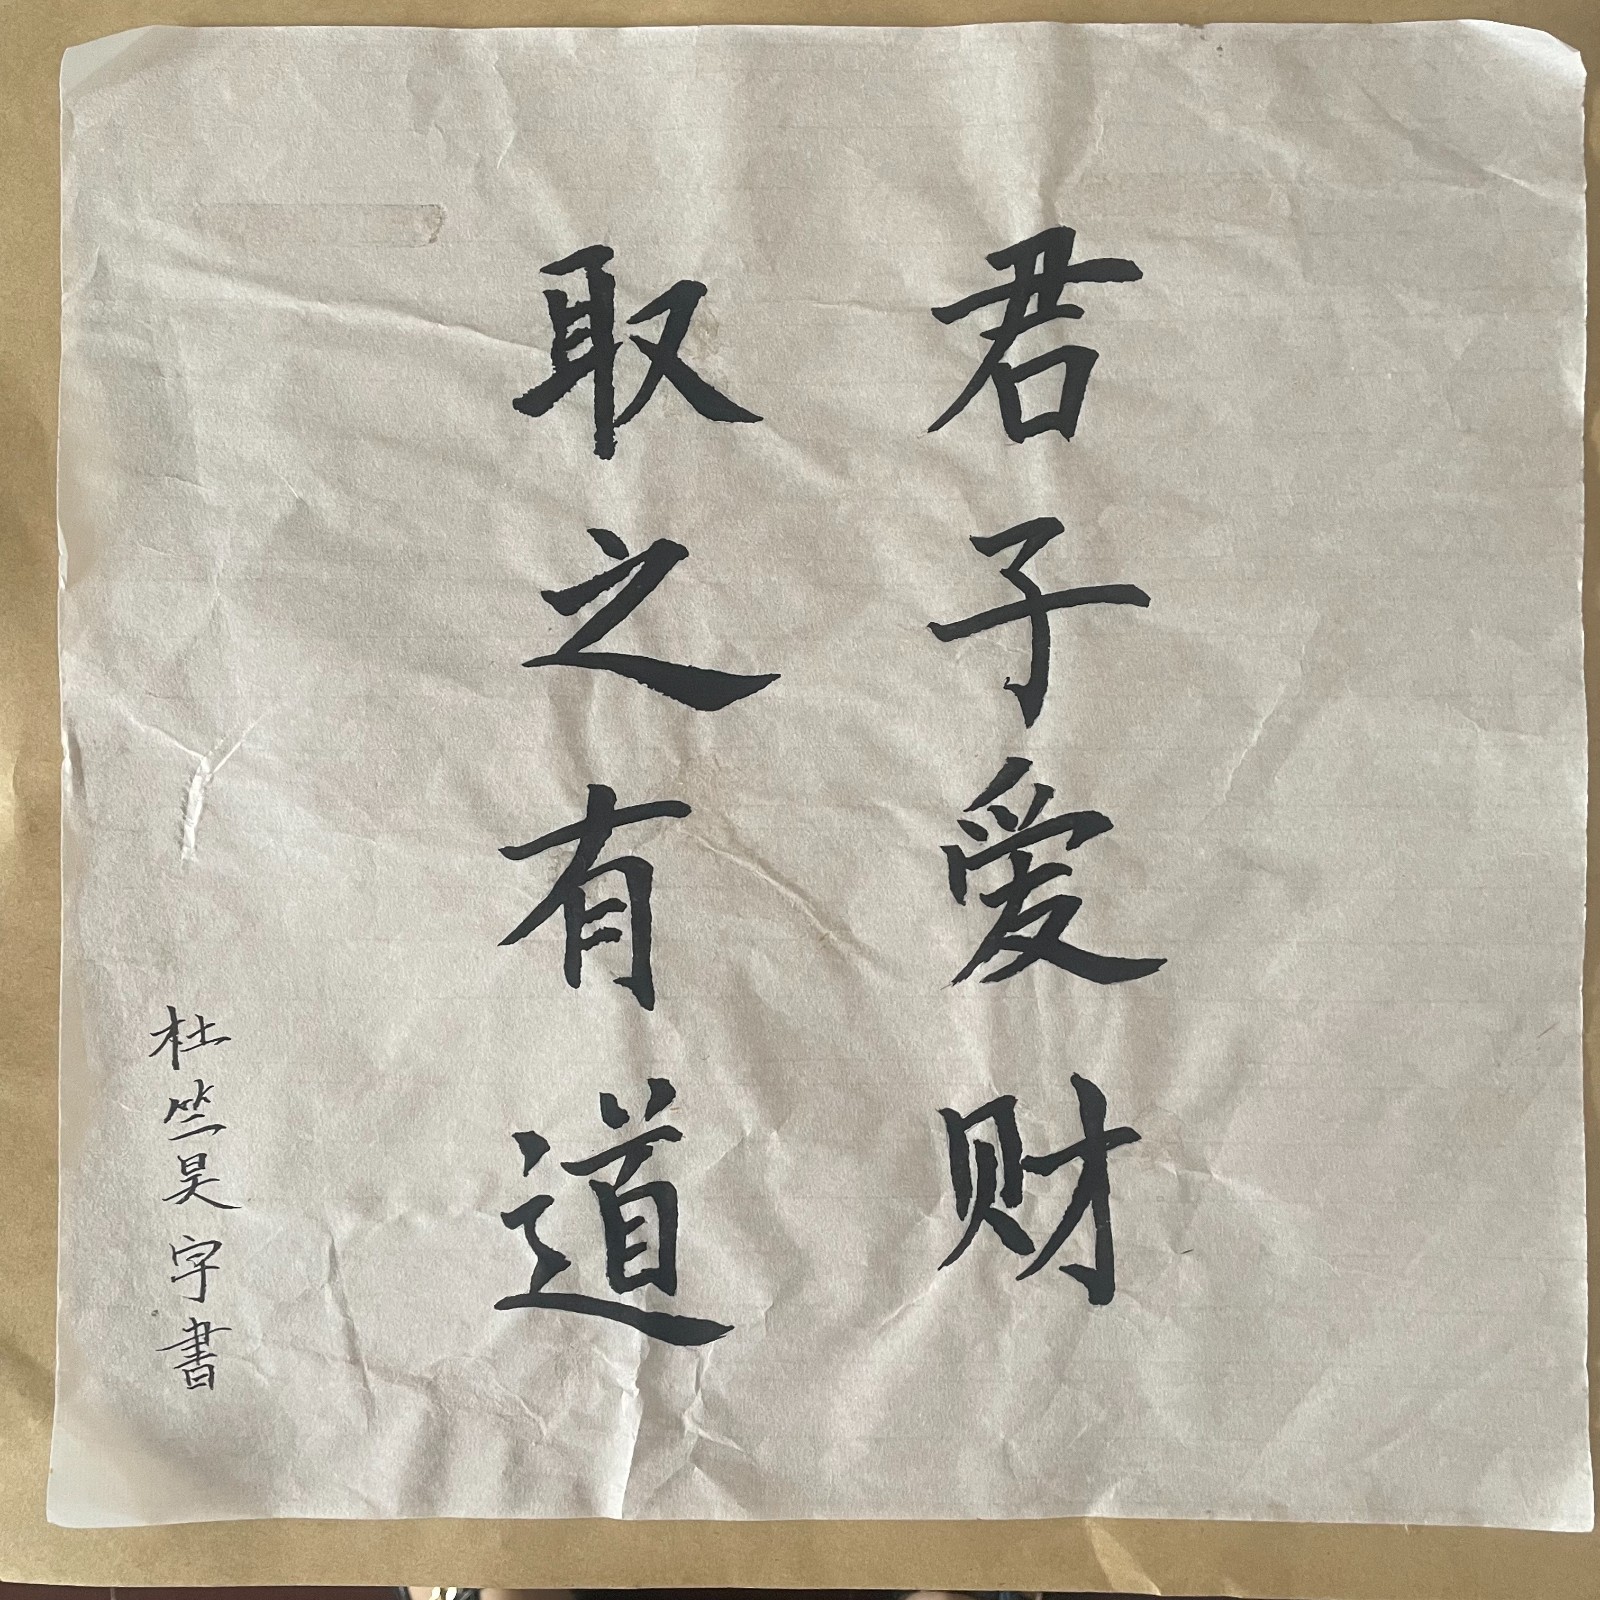 君子爱财
取之有道
杜竺昊字書